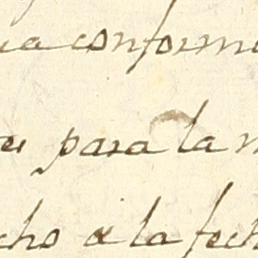 conform
para la
cho a la fech